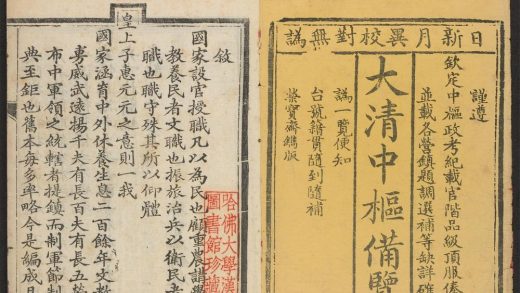 日新月異校對無譌
謹遵
欽定中樞政考紀載官階品級頂服俸
並載各營鎮題調選補等缺詳確
大清中樞備覽
覽便知
台號籍貫隨到隨補
榮寶齋鐫版
敘
國家設官授職凡以為民也顧重農講學
教養民者文職也振旅治兵以衛民者
職也職守殊其所以仰體
皇上子惠元元之意則一我
國家涵育中外休養生息二百餘年文教
威武遠揚千夫有長百夫有長五
布中軍領之統轄者提鎮而制軍節制
典至鉅也舊本每多率略今是編成
哈佛大學漢
圖書館珍藏